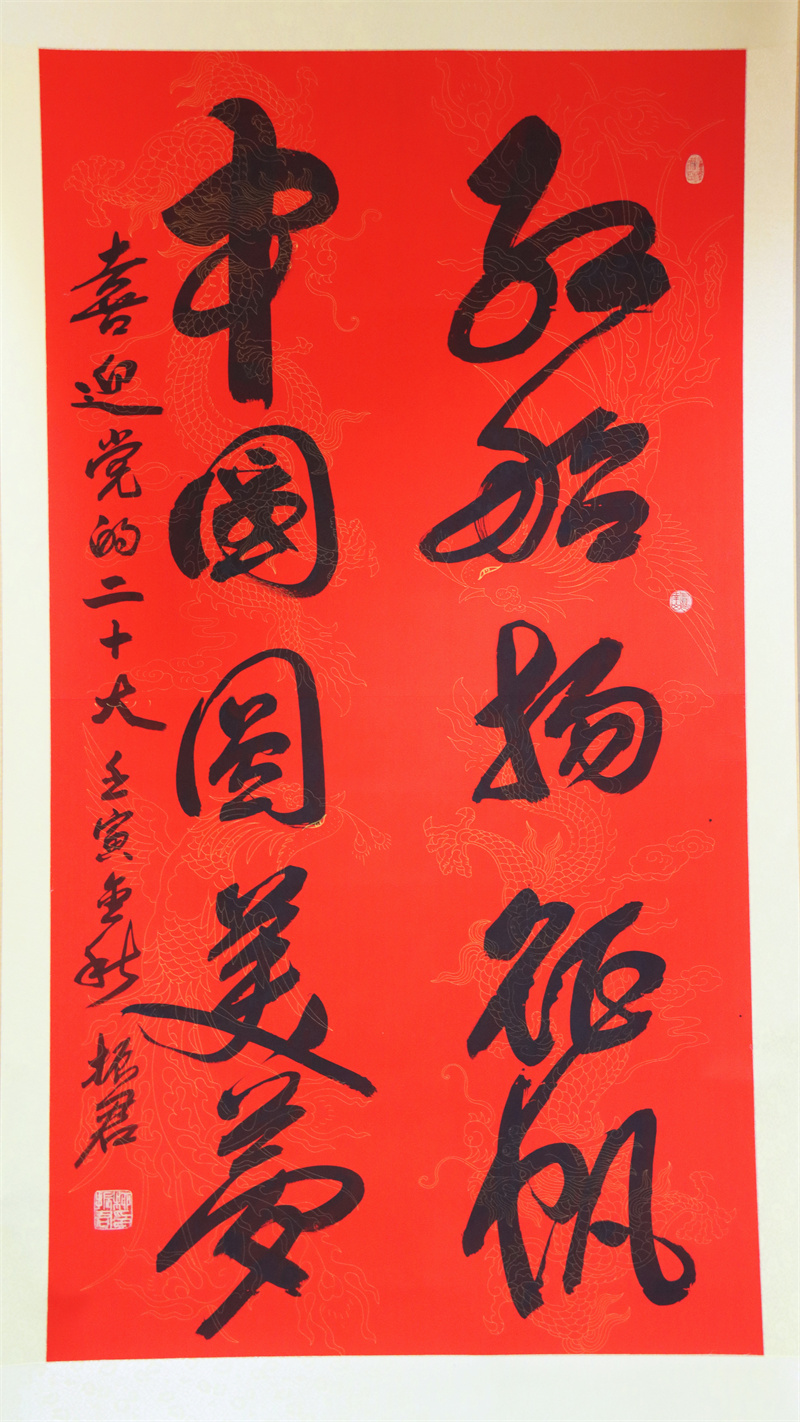 红船扬征帆
中国圆美梦
喜迎党的二十大 壬寅金秋 振君